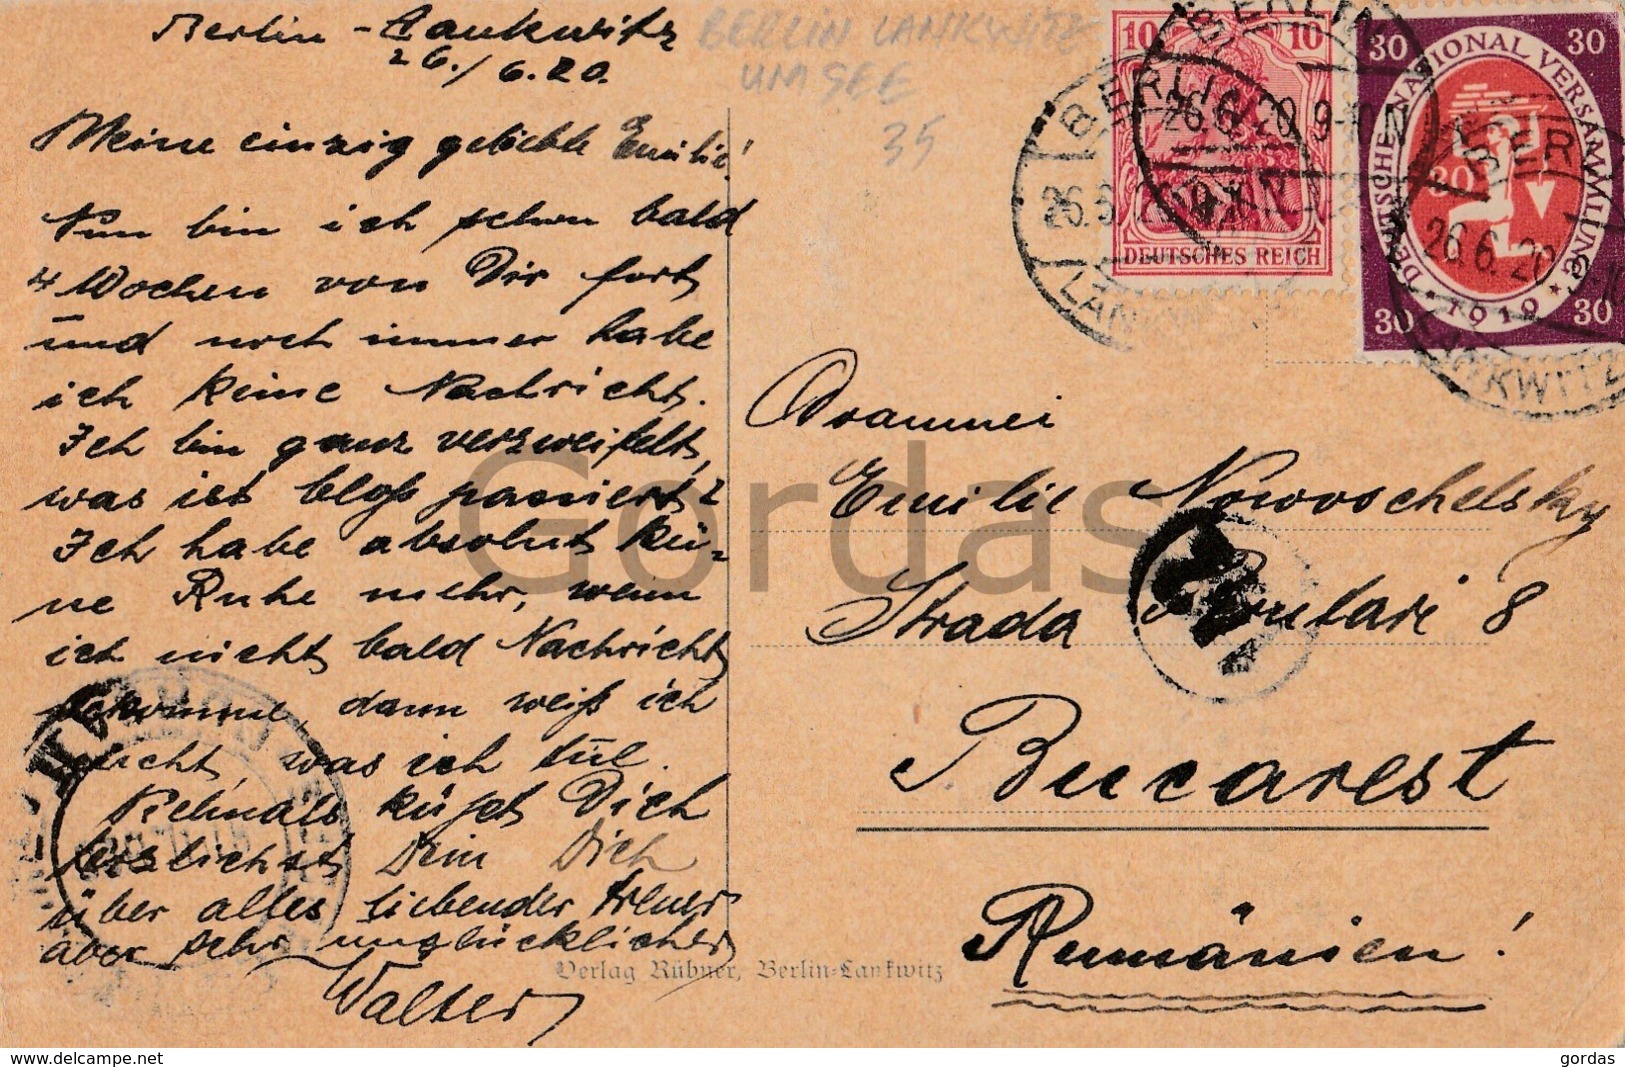 Berlin-Lankwitz
26./6.20.
BERLIN LANKWITZ
UM SEE
35
Meine einzig geliebte Emilie!
Nun bin ich schon bald
4 Wochen von Dir fort
und noch immer habe
ich keine Nachricht.
Ich bin ganz verzweifelt,
was ist bloß passiert?
Ich habe absolut kei-
ne Ruhe mehr, wenn
ich nicht bald Nachricht
bekomme, dann weiß ich
nicht, was ich tue.
küßt Dich
herzlichst Dein Dich
über alles liebender treuer
aber sehr unglücklicher
Walter
10 10
DEUTSCHES REICH
30 30
DEUTSCHE NATIONALVERSAMMLUNG
30
* 1919 *
30 30
BERLIN
26.6.20 9-10 N
LANKWITZ
BERLIN
26.6.20 9-10 N
BERLIN
26.6.20 9-10 N
LANKWITZ
Emilie Nowoschelsky
Strada 8
Bucarest
Rumänien!
Verlag Rübner, Berlin-Lankwitz
Gordas
www.delcampe.net
gordas